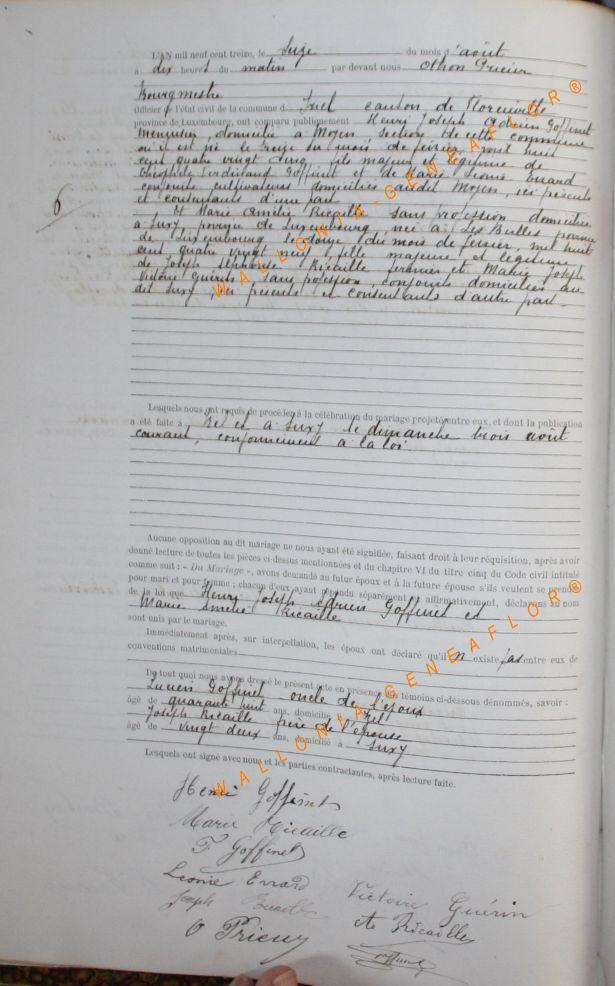 L'AN mil neuf cent treize, le seize du mois d'août
à dix heures du matin par devant nous Othon Prieur
Bourgmestre
Officier de l'état civil de la commune d'Izel canton de Florenville
province de Luxembourg, ont comparu publiquement Henri Joseph Adrien Goffinet
menuisier, domicilié à Moyen section de cette commune
où il est né le treize du mois de février mil huit
cent quatre vingt cinq, fils majeur et légitime de
Théophile Ferdinand Goffinet et de Marie Léonie Errard
conjoints cultivateurs domiciliés audit Moyen, ici présents
et consentants d'une part
6
Et Marie Amélie Ricaille sans profession domiciliée
à Suxy province de Luxembourg, née à Les Bulles province
de Luxembourg le douze du mois de février, mil huit
cent quatre vingt neuf, fille majeure et légitime
de Joseph Alphonse Ricaille et Marie Joseph
Victoire Guérin, sans profession, conjoints domiciliés au
dit Suxy, ici présents et consentants d'autre part
Lesquels nous ont requis de procéder à la célébration du mariage projeté entre eux, et dont la publication
a été faite à Izel et à Suxy le dimanche trois août
courant, conformément à la loi
Aucune opposition au dit mariage ne nous ayant été signifiée, faisant droit à leur réquisition, après avoir
donné lecture de toutes les pièces ci-dessus mentionnées et du chapitre VI du titre cinq du Code civil intitulé
comme suit : « Du Mariage », avons demandé au futur époux et à la future épouse s'ils veulent se prendre
pour mari et pour femme ; chacun d'eux ayant répondu séparément et affirmativement, déclarons au nom
de la loi que Henri Joseph Adrien Goffinet et
Marie Amélie Ricaille
sont unis par le mariage.
Immédiatement après, sur interpellation, les époux ont déclaré qu'il n existe pas entre eux de
conventions matrimoniales
De tout quoi nous avons dressé le présent acte en présence des témoins ci-dessous dénommés, savoir :
Lucien Goffinet oncle de l'époux
âgé de quarante huit ans, domicilié à Izel
Joseph Ricaille frère de l'épouse
âgé de vingt deux ans, domicilié à Suxy
Lesquels ont signé avec nous et les parties contractantes, après lecture faite.
Henri Goffinet
Marie Ricaille
F. Goffinet
Léonie Errard
Victoire Guérin
Joseph Ricaille
Ricaille
O Prieur
WALLONIA-GENEAFLOR®
WALLONIA GENEAFLOR®